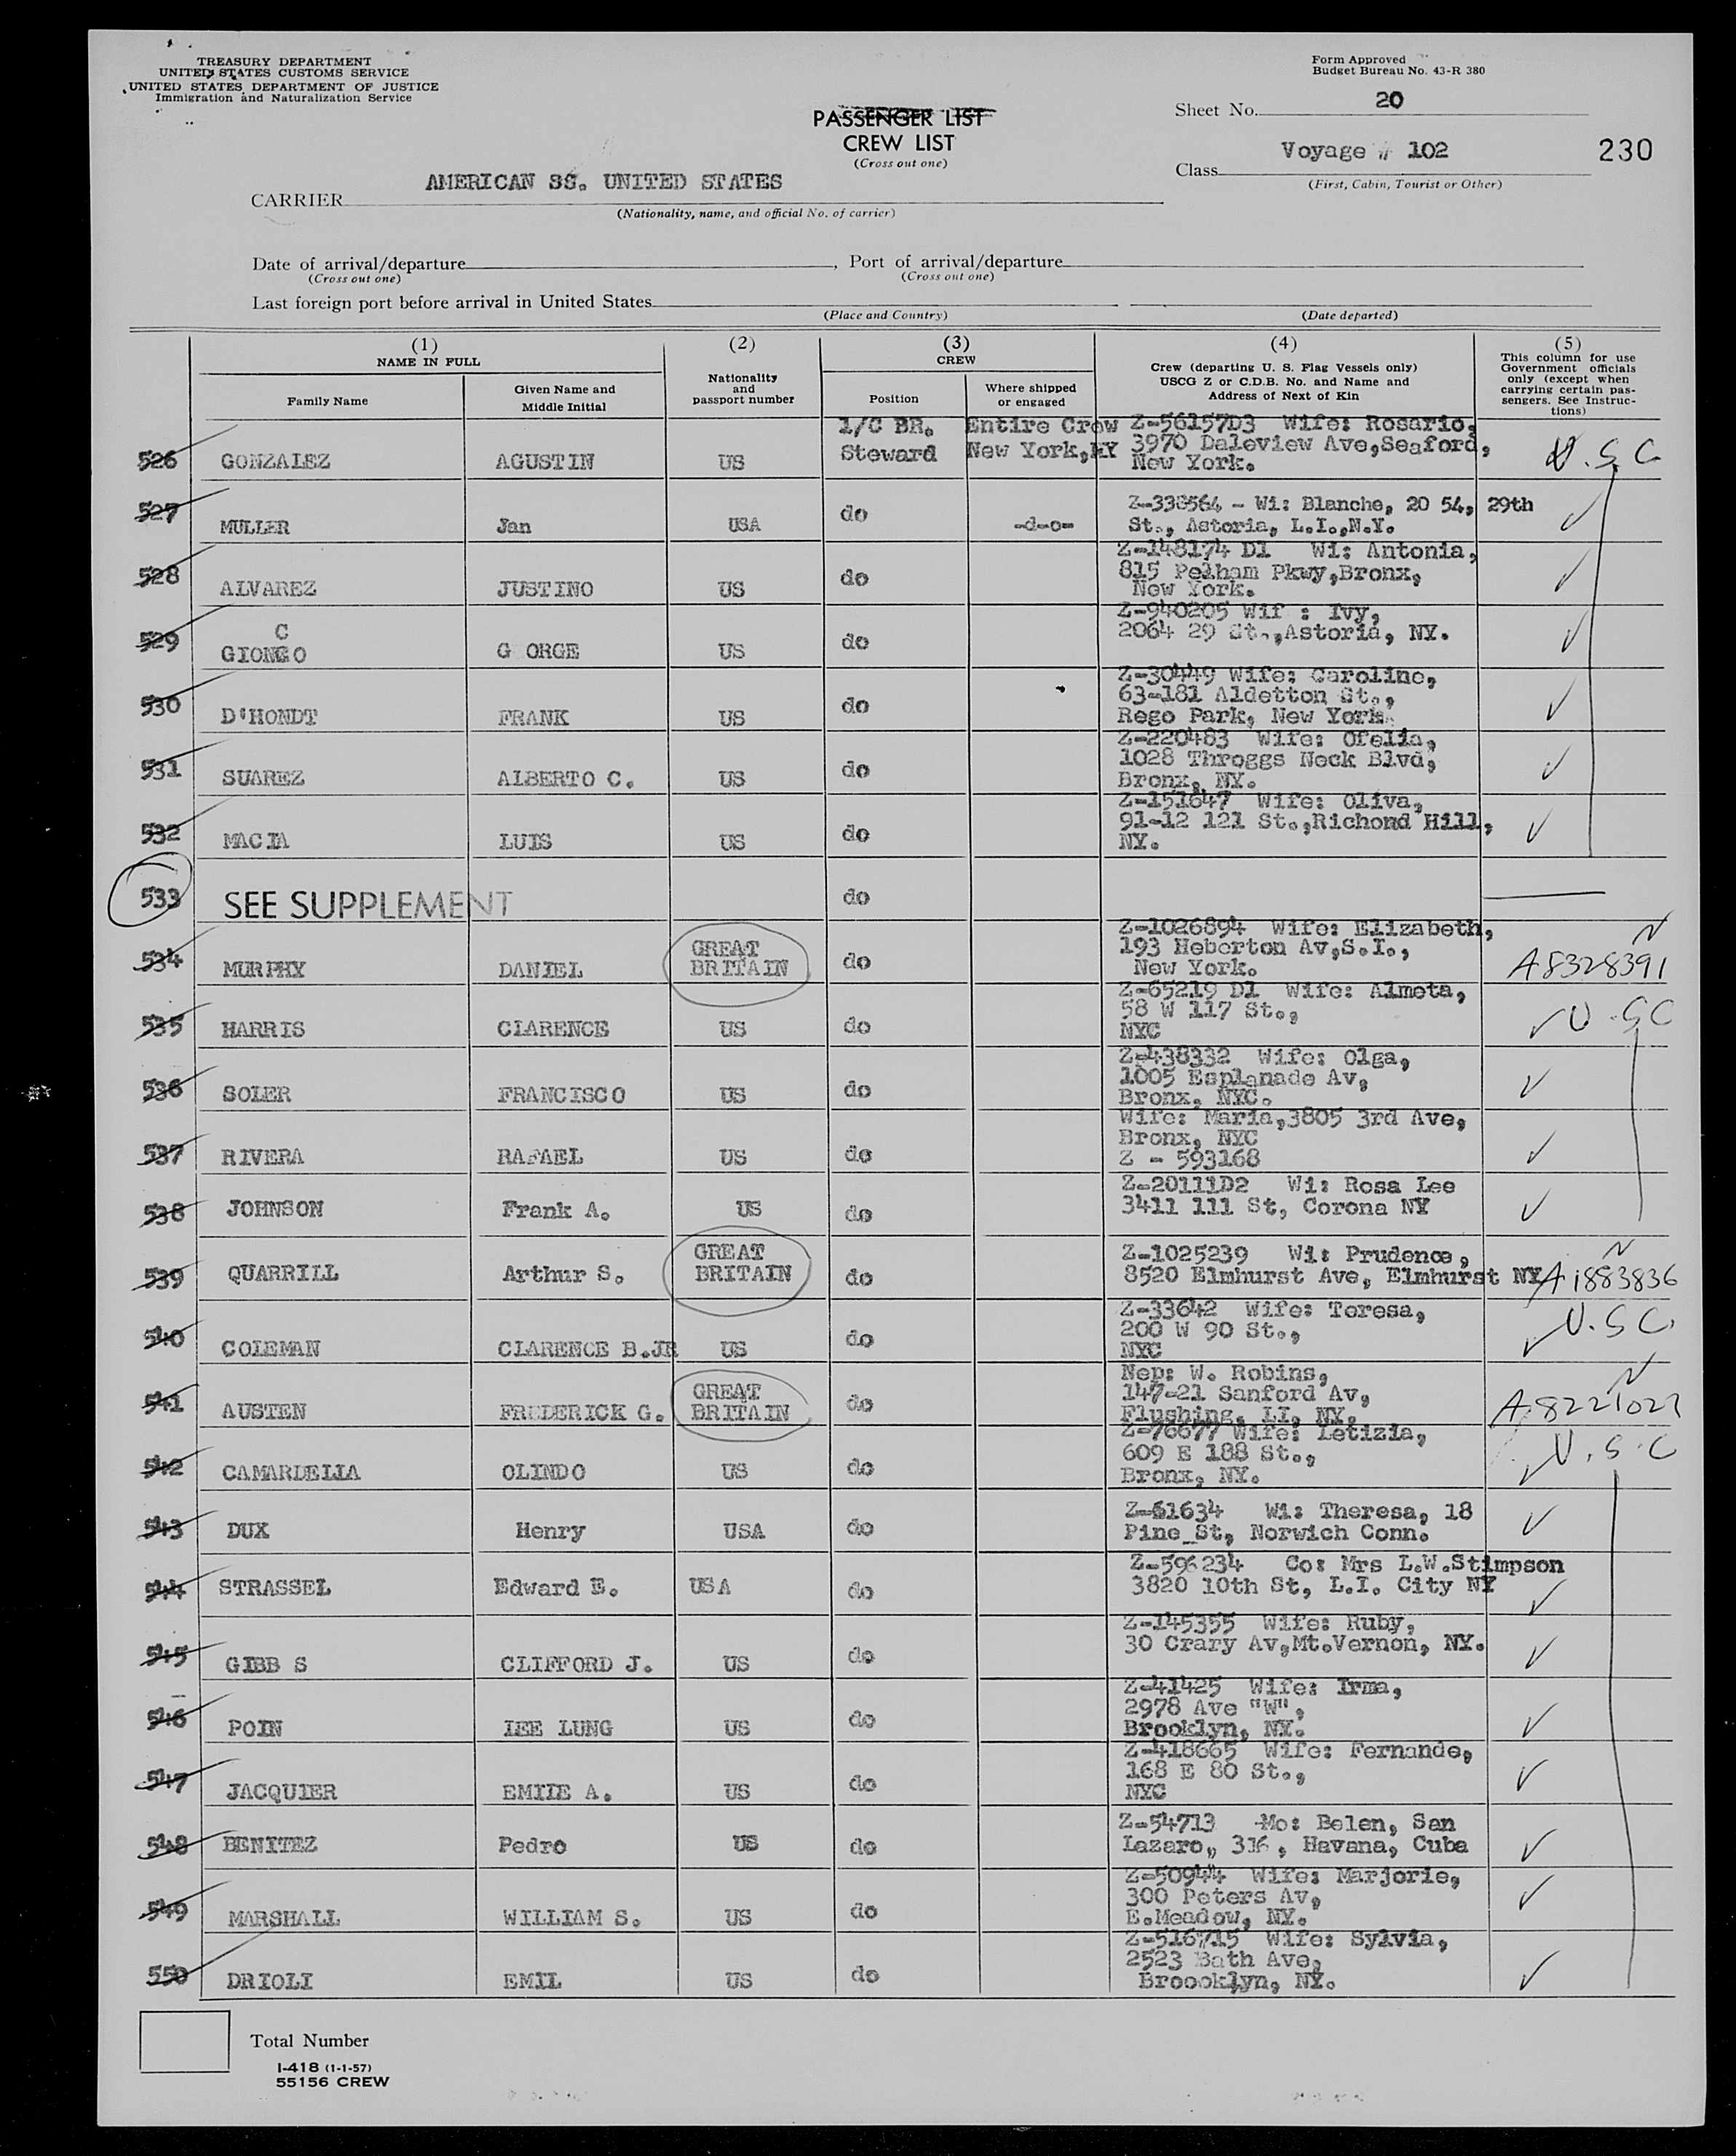 TREASURY DEPARTMENT
UNITED STATES CUSTOMS SERVICE
UNITED STATES DEPARTMENT OF JUSTICE
Immigration and Naturalization Service
Form Approved
Budget Bureau No. 43-R 380
Sheet No. 20
PASSENGER LIST
CREW LIST
(Cross out one)
Voyage # 102
230
Class
(First, Cabin, Tourist or Other)
CARRIER AMERICAN SS. UNITED STATES
(Nationality, name, and official No. of carrier)
Date of arrival/departure , Port of arrival/departure
(Cross out one) (Cross out one)
Last foreign port before arrival in United States
(Place and Country) (Date departed)
(1) NAME IN FULL
Family Name
Given Name and Middle Initial
(2) Nationality and passport number
(3) CREW
Position
Where shipped or engaged
(4) Crew (departing U. S. Flag Vessels only) USCG Z or C.D.B. No. and Name and Address of Next of Kin
(5) This column for use Government officials only (except when carrying certain passengers. See Instructions)
526 GONZALEZ AGUSTIN US 1/C BR. Steward Entire Crew New York,NY Z-56157D3 Wife: Rosario, 3970 Daleview Ave,Seaford, New York. U.S.C.
527 MULLER Jan USA do -d-o- Z-338564 - Wi: Blanche, 20 54, 29th St., Astoria, L.I.,N.Y. ✓
528 ALVAREZ JUSTINO US do Z-148174 D1 Wi: Antonia, 815 Pelham Pkwy,Bronx, New York. ✓
529 C GIONGO G ORGE US do Z-940205 Wif : Ivy, 2064 29 St.,Astoria, NY. ✓
530 D'HONDT FRANK US do Z-30449 Wife: Caroline, 63-181 Aldetton St., Rego Park, New York. ✓
531 SUAREZ ALBERTO C. US do Z-220483 Wife: Ofelia, 1028 Throggs Neck Blvd, Bronx, NY. ✓
532 MACIA LUIS US do Z-151647 Wife: Oliva, 91-12 121 St.,Richond Hill, NY. ✓
533 SEE SUPPLEMENT do
534 MURPHY DANIEL GREAT BRITAIN do Z-1026894 Wife: Elizabeth, 193 Heberton Av,S.I., New York. A8328391
535 HARRIS CLARENCE US do Z-65219 D1 Wife: Almeta, 58 W 117 St., NYC ✓ U.S.C
536 SOLER FRANCISCO US do Z-438332 Wife: Olga, 1005 Esplanade Av, Bronx, NYC. ✓
537 RIVERA RAFAEL US do Wife: Maria,3805 3rd Ave, Bronx, NYC Z - 593168 ✓
538 JOHNSON Frank A. US do Z-20111D2 Wi: Rosa Lee 3411 111 St, Corona NY ✓
539 QUARRILL Arthur S. GREAT BRITAIN do Z-1025239 Wi: Prudence, 8520 Elmhurst Ave, Elmhurst NY A1883836
540 COLEMAN CLARENCE B.JR US do Z-33642 Wife: Teresa, 200 W 90 St., NYC ✓ U.S.C.
541 AUSTEN FREDERICK G. GREAT BRITAIN do Nep: W. Robins, 147-21 Sanford Av, Flushing, LI, NY.
542 CAMARDELLA OLINDO US do Z-76677 Wife: Letizia, 609 E 188 St., Bronx, NY. ✓ U.S.C
543 DUX Henry USA do Z-61634 Wi: Theresa, 18 Pine St, Norwich Conn. ✓
544 STRASSEL Edward E. USA do Z-596234 Co: Mrs L.W.Stimpson 3820 10th St, L.I. City NY ✓
545 GIBB S CLIFFORD J. US do Z-145355 Wife: Ruby, 30 Crary Av,Mt.Vernon, NY. ✓
546 POIN LEE LUNG US do Z-41425 Wife: Irma, 2978 Ave "W", Brooklyn, NY. ✓
547 JACQUIER EMILE A. US do Z-418665 Wife: Fernande, 168 E 80 St., NYC ✓
548 BENITEZ Pedro US do Z-54713 Mo: Belen, San Lazaro,, 316, Havana, Cuba ✓
549 MARSHALL WILLIAM S. US do Z-50944 Wife: Marjorie, 300 Peters Av, E.Meadow, NY. ✓
550 DRIOLI EMIL US do Z-516715 Wife: Sylvia, 2523 Bath Ave, Broooklyn, NY. ✓
Total Number
I-418 (1-1-57)
55156 CREW